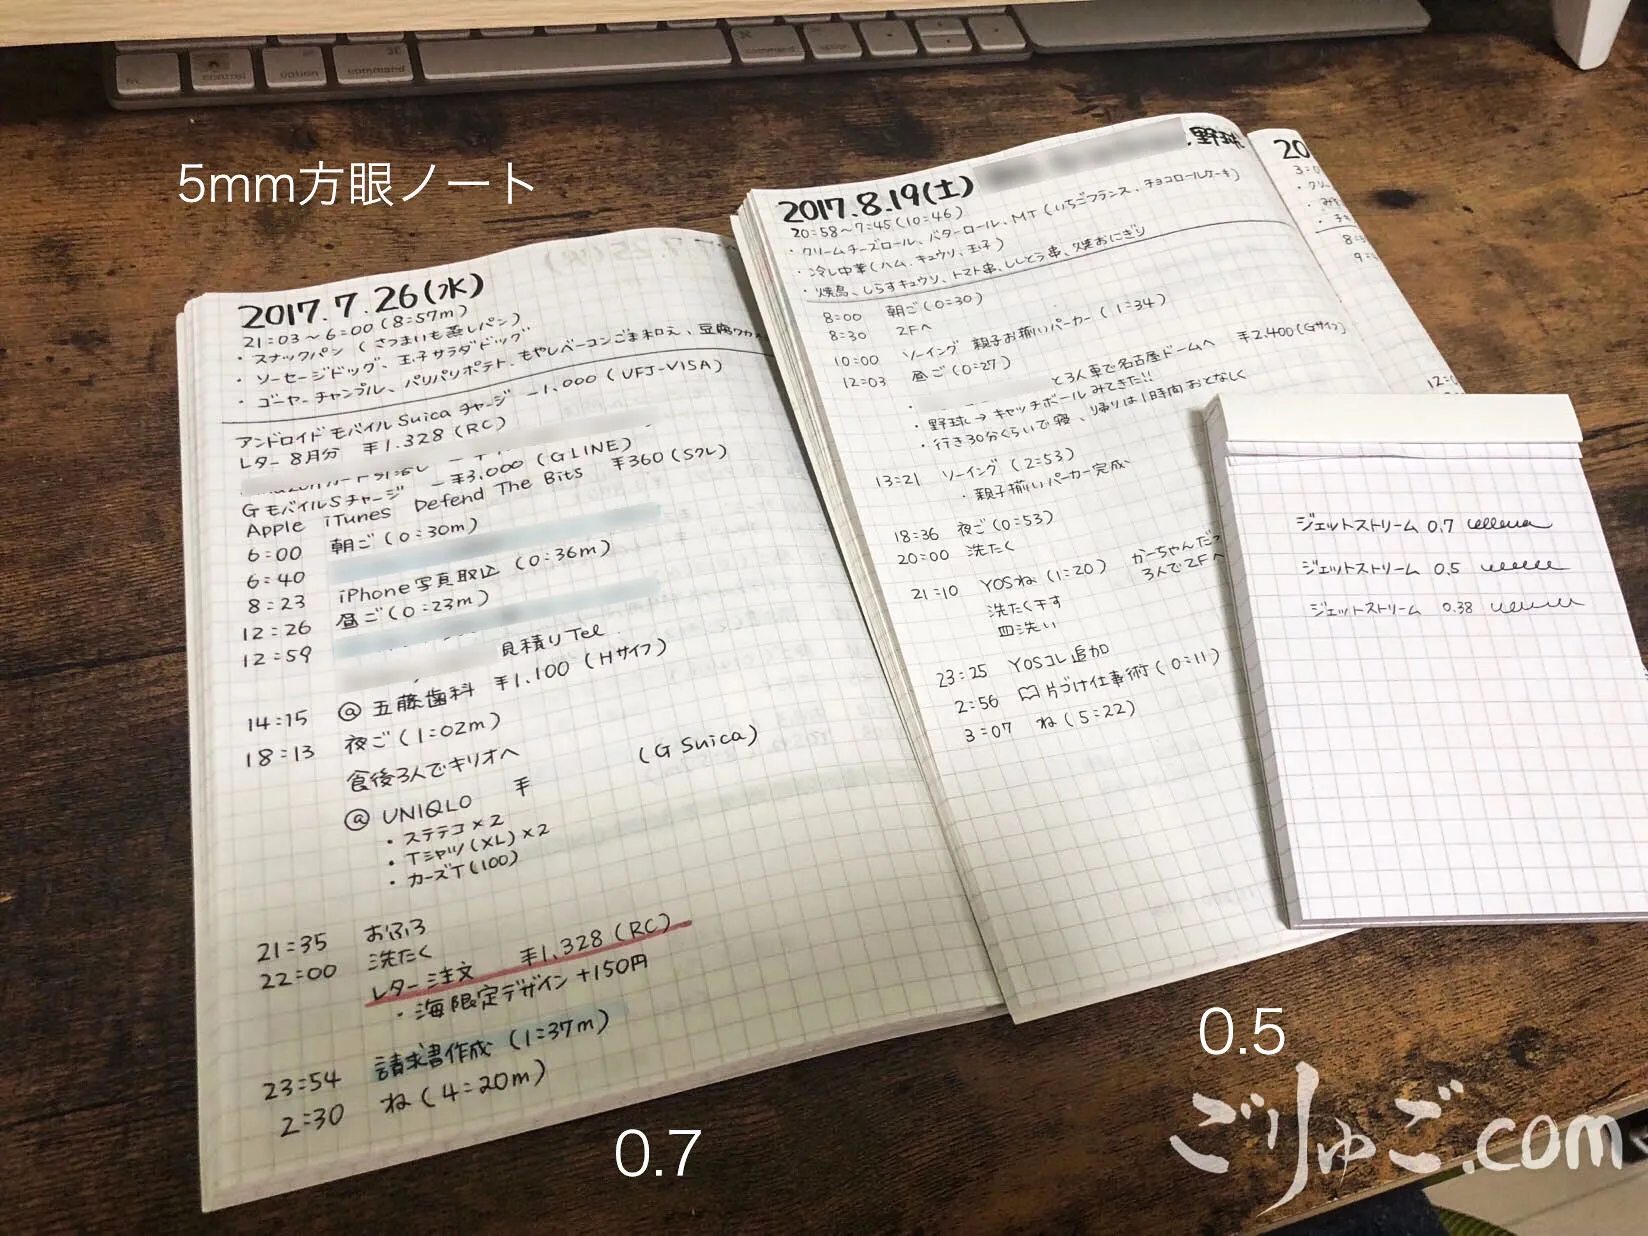 fn control option command ⌘ command option
5mm方眼ノート
2017.7.26(水)
21:03〜6:00(8:57m)
・スナックパン(さつまいも蒸しパン)
・ソーセージドッグ、玉子サラダドッグ
・ゴーヤーチャンプル、パリパリポテト、もやしベーコンごま和え、豆腐ワカ
アンドロイド モバイル Suica チャージ -1,000 (UFJ-VISA)
レター 8月分 ¥1.328 (RC)
GモバイルSチャージ -¥3,000 (G LINE)
Apple iTunes Defend The Bits ¥360 (Sクレ)
6:00 朝ご(0:30m)
6:40
8:23 iPhone写真取込 (0:36m)
12:26 昼ご(0:23m)
12:59
見積りTel
14:15 @ 五藤歯科 ¥1.100 (Hサイフ)
18:13 夜ご(1:02m)
食後3人でキリオへ
@ UNIQLO ¥ (G Suica)
・ステテコ×2
・Tシャツ(XL)×2
・カーズT(100)
21:35 おふろ
22:00 洗たく
レター注文 ¥1,328 (RC)
・海限定デザイン+150円
23:54 請求書作成 (1:37m)
2:30 ね(4:20m)
0.7
2017.8.19(土) 野球
20:58〜7:45(10:46)
・クリームチーズロール、バターロール、MT(いちごフランス、チョコロールケーキ)
・冷し中華(ハム、キュウリ、玉子)
・焼鳥、しらすキュウリ、トマト串、ししとう串、焼おにぎり
8:00 朝ご(0:30)
8:30 2Fへ
10:00 ソーイング 親子お揃いパーカー (1:34)
12:03 昼ご(0:27)
・ と3人車で名古屋ドームへ ¥2,400(Gサイフ)
・野球→キャッチボール みてきた!!
・行き30分くらいで寝、帰りは1時間おとなしく
13:21 ソーイング (2:53)
・親子揃いパーカー完成、
18:36 夜ご(0:53)
20:00 洗たく
21:10 YOSね(1:20) かーちゃんだっ
洗たく干す 3人で2Fへ
皿洗い
23:25 YOSコレ追加
2:56 片づけ仕事術(0:11)
3:07 ね(5:22)
20
12:0
ジェットストリーム 0.7
ジェットストリーム 0.5
ジェットストリーム 0.38
0.5
ごりゅご.com